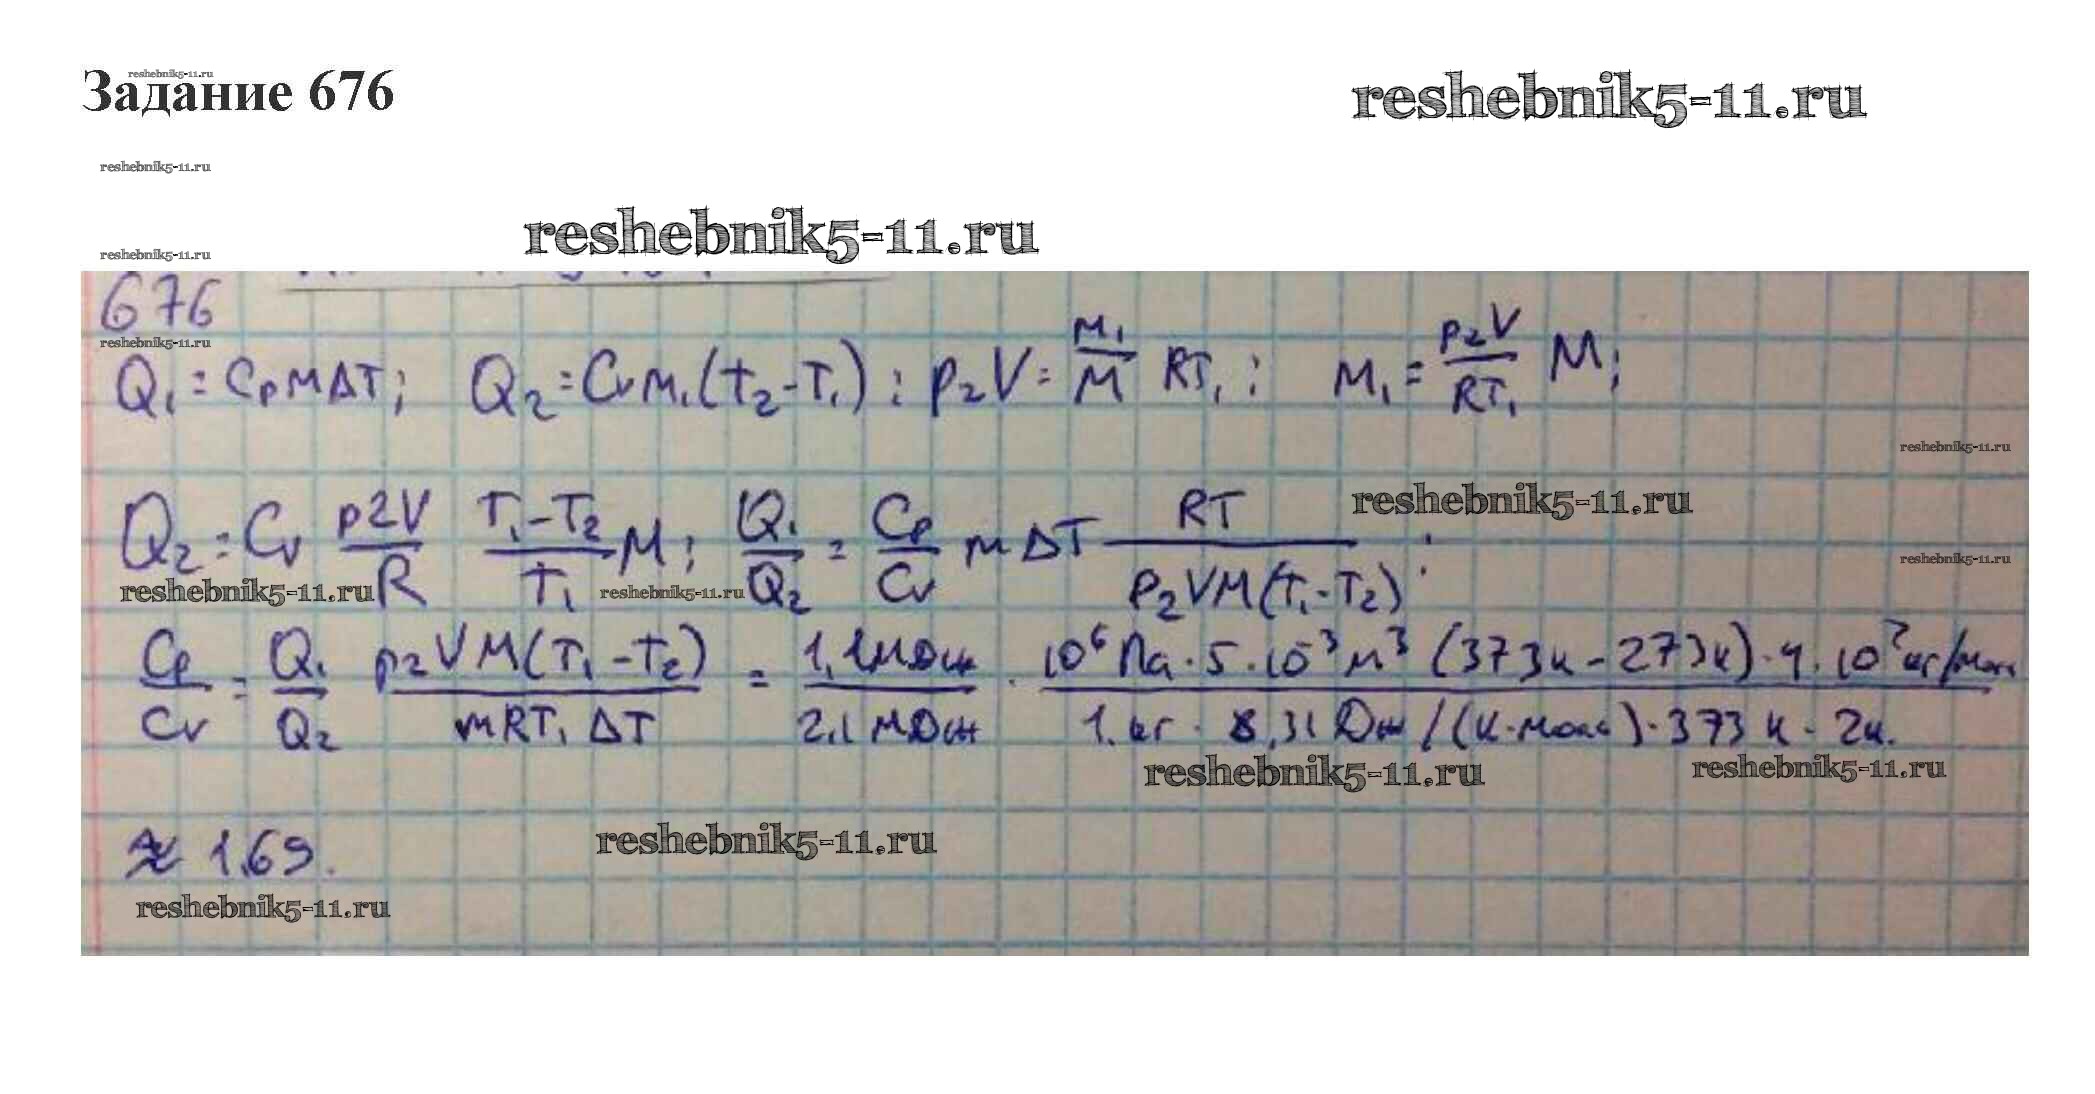 Задание 676
reshebnik5-11.ru
reshebnik5-11.ru
reshebnik5-11.ru
reshebnik5-11.ru
reshebnik5-11.ru
676
reshebnik5-11.ru
Q₁ = CₚmΔT; Q₂ = Cᵥm₁(t₂-T₁); p₂V = m₁/M RT₁; m₁ = p₂V/RT₁ M;
reshebnik5-11.ru
reshebnik5-11.ru
Q₂ = Cᵥ p2V/R T₁-T₂/T₁ M; Q₁/Q₂ = Cₚ/Cᵥ mΔT RT/p₂VM(T₁-T₂);
reshebnik5-11.ru
reshebnik5-11.ru
reshebnik5-11.ru
Cₚ/Cᵥ = Q₁/Q₂ p₂VM(T₁-T₂)/mRT₁ΔT = 1,1МДж/2,1МДж · 10⁶Па·5·10⁻³м³(373к-273к)·4·10⁻²кг/моль/1.кг·8,31Дж/(К·моль)·373к·2к.
reshebnik5-11.ru
reshebnik5-11.ru
≈ 1,69.
reshebnik5-11.ru
reshebnik5-11.ru